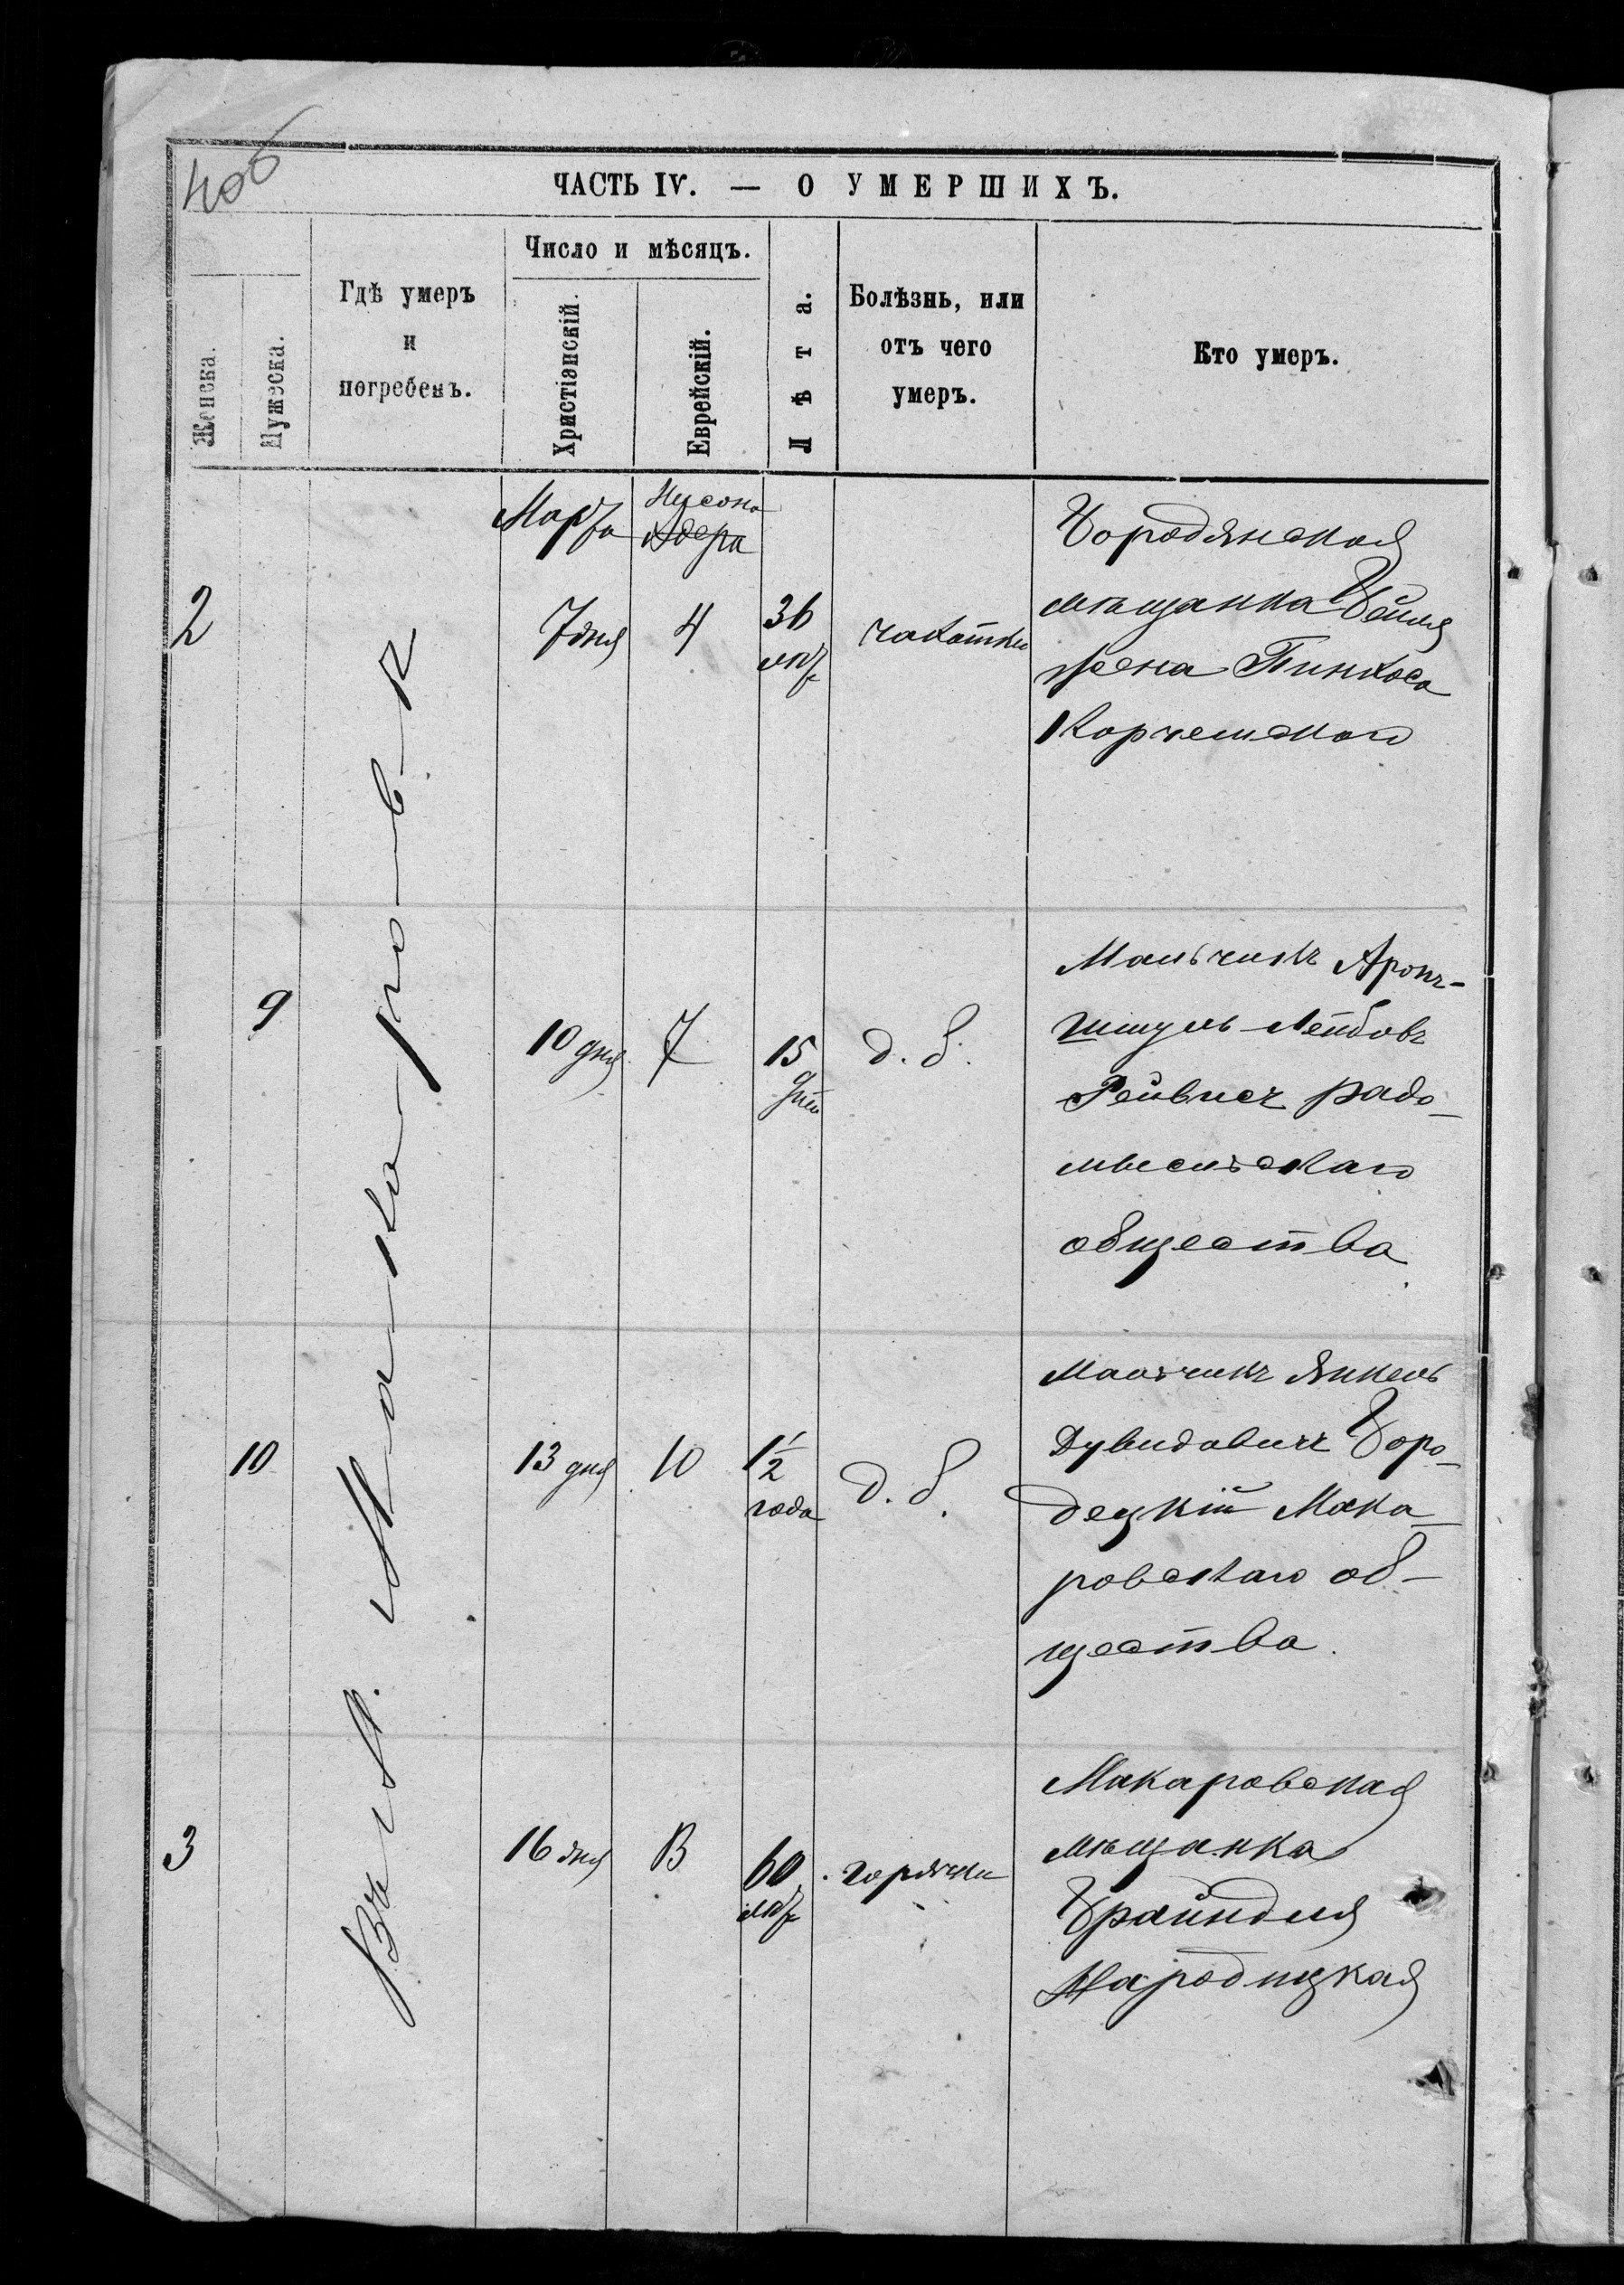 4об
ЧАСТЬ IV. — О УМЕРШИХЪ.
Женска.
Мужеска.
Гдѣ умеръ
и
погребенъ.
Число и мѣсяцъ.
Христіанскій.
Еврейскій.
Лѣта.
Болѣзнь, или
отъ чего
умеръ.
Кто умеръ.
Въ М. Макаровѣ
Марта
Нисона
Адера
2
7 дня
4
36
лѣт
чахотки
Бородянская
мѣщанка Бейля
жена Пинхоса
Корчемского
9
10 дня
7
15
дней
д. б.
Мальчикъ Аронъ-
Шмуль Лейбовъ
Рейвисъ радо-
мысльскаго
общества
10
13 дня
10
1 1/2
года
д. б.
Мальчикъ Янкель
Дувидовичъ Боро-
децкій Мака-
ровскаго об-
щества.
3
16 дня
13
60
лѣт
горячки
Макаровская
мѣщанка
Брайндля
Народицкая